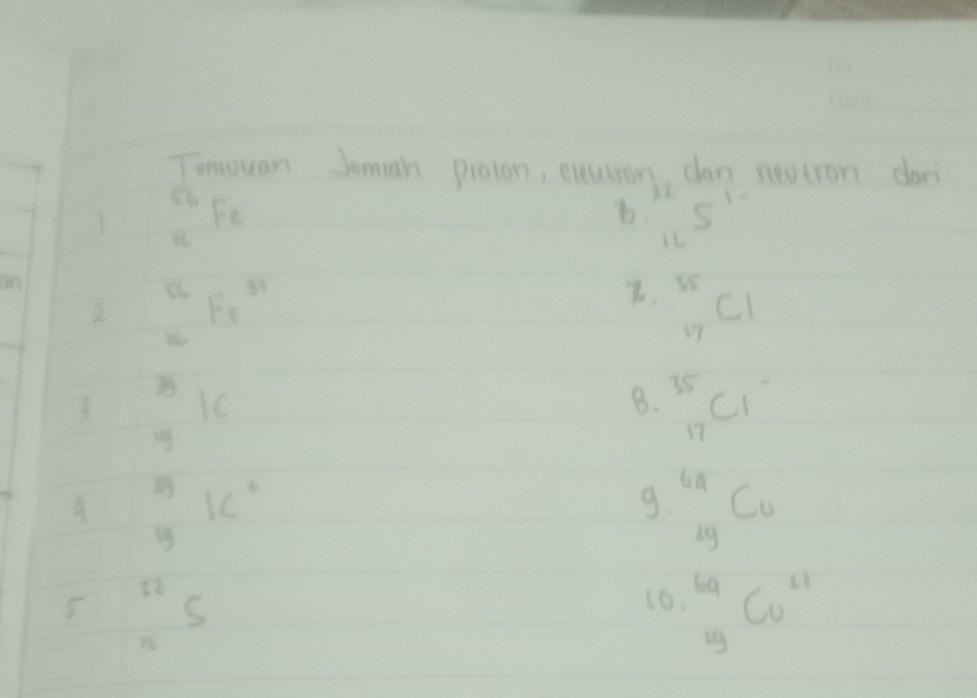 Temouan Jomlah proton, eleutron, dan neutron dari
1 56 Fe
2 56 Fe 3+
3 39 19 K
4 39 19 K+
5 32 S
6. 32 16 S
7. 35 17 Cl
8. 35 17 Cl-
9. 64 29 Cu
10. 64 29 Cu 2+